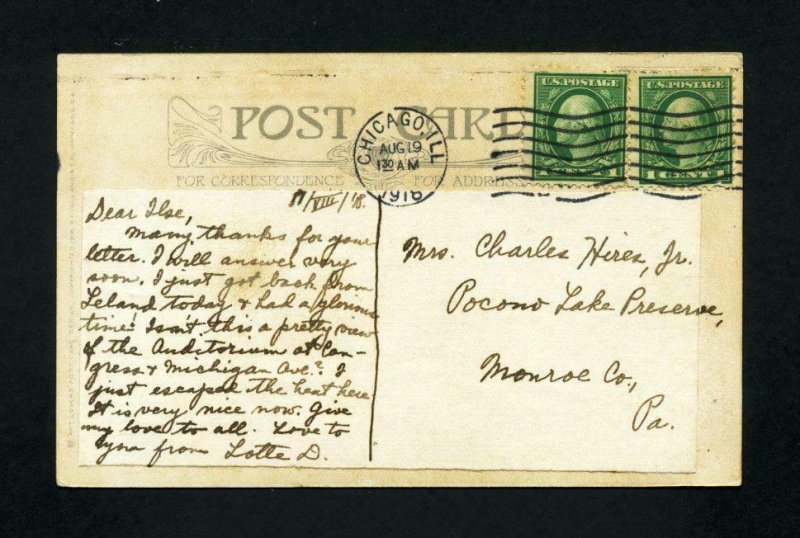 U.S. POSTAGE
U.S. POSTAGE
POST CARD
CHICAGO, ILL
AUG 19
1 30 AM
1918
1 CENT 1
FOR CORRESPONDENCE
FOR ADDRESS
/VIII/'18.
Dear Ilse,
Many thanks for your
letter. I will answer very
soon. I just got back from
Leland today & had a glorious
time! Isn't this a pretty view
of the Auditorium at Con-
gress & Michigan Ave? I
just escaped the heat here
It is very nice now. Give
my love to all. Love to
you from Lotte D.
Mrs. Charles Hires, Jr.
Pocono Lake Preserve,
Monroe Co.,
Pa.